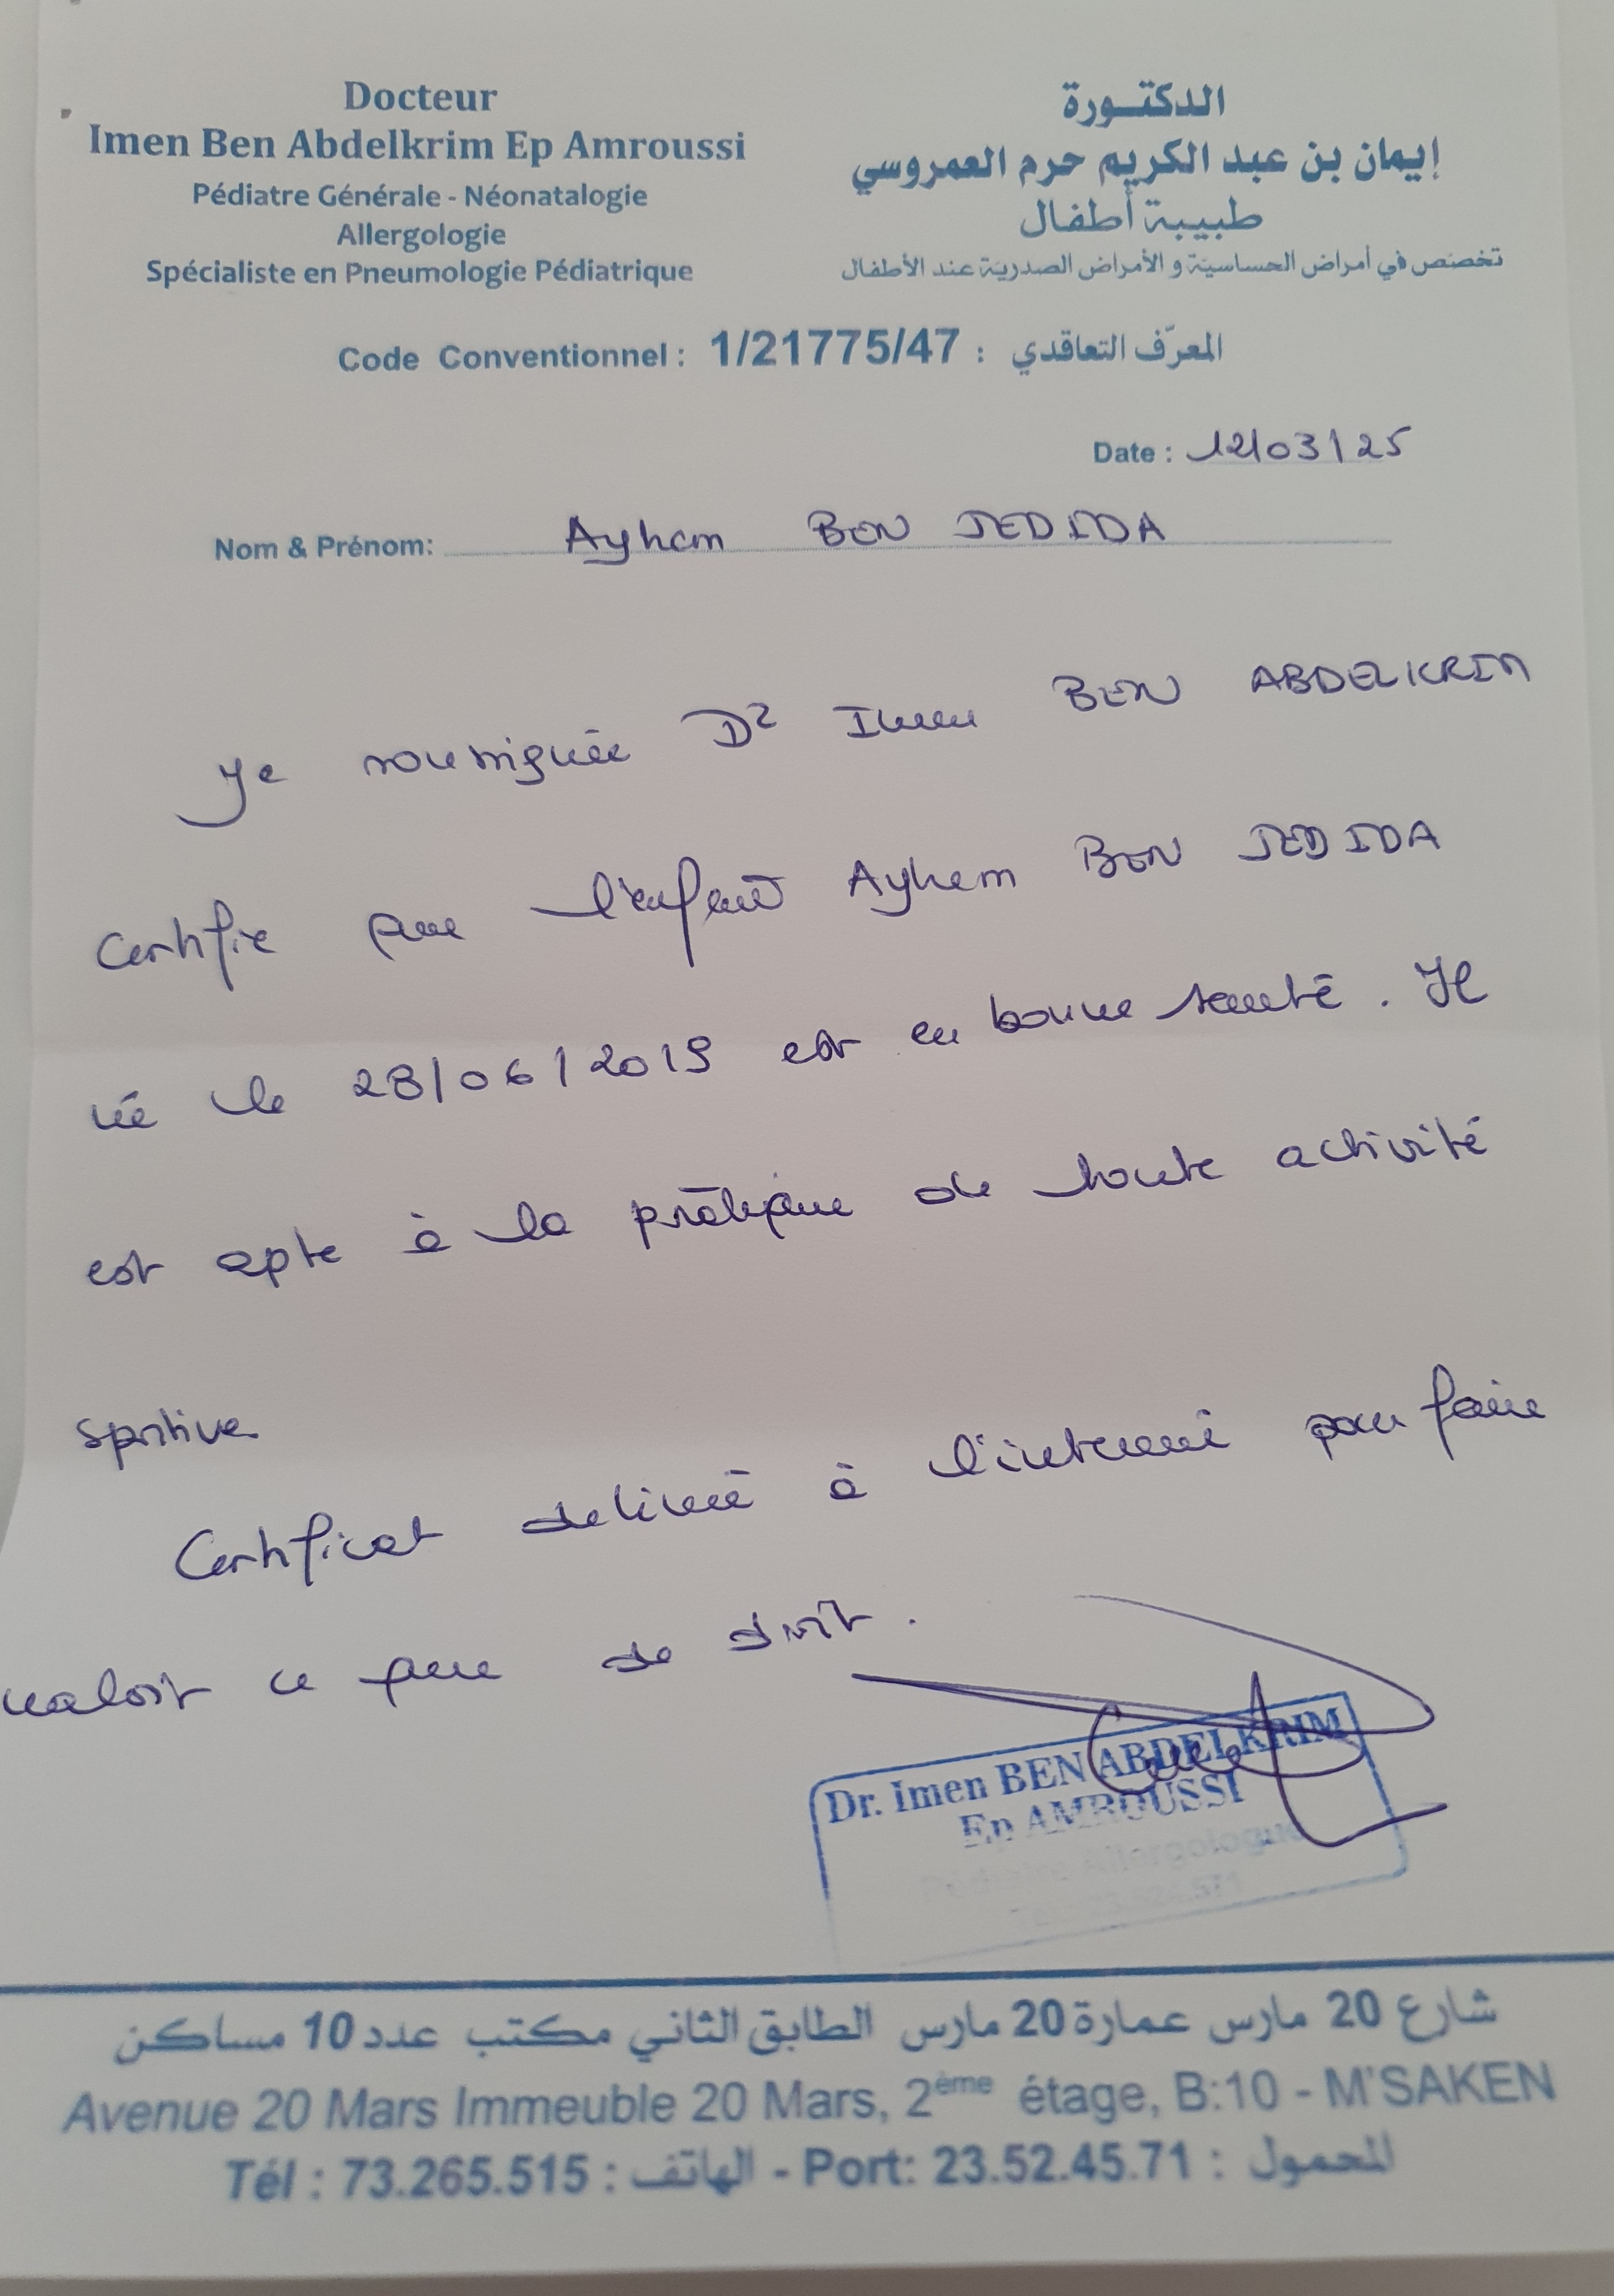 Docteur
Imen Ben Abdelkrim Ep Amroussi
Pédiatre Générale - Néonatalogie
Allergologie
Spécialiste en Pneumologie Pédiatrique
الدكتورة
إيمان بن عبد الكريم حرم العمروسي
طبيبة أطفال
تخصص في أمراض الحساسية و الأمراض الصدرية عند الأطفال
Code Conventionnel : 1/21775/47 : المعرّف التعاقدي
Date : 12/03/25
Nom & Prénom: Ayhem BEN JEDIDA
Je soussignée Dr Imen BEN ABDELKRIM
Certifie que l'enfant Ayhem BEN JEDIDA
né le 28/06/2019 est en bonne santé. Il
est apte à la pratique de toute activité
sportive
Certificat delivré à l'interessé pour faire
valoir ce que de droit.
Dr. Imen BEN ABDELKRIM
Ep AMROUSSI
Pédiatre Allergologue
شارع 20 مارس عمارة 20 مارس الطابق الثاني مكتب عدد 10 مساكن
Avenue 20 Mars Immeuble 20 Mars, 2ème étage, B:10 - M'SAKEN
Tél : 73.265.515 : الهاتف - Port: 23.52.45.71 : المحمول